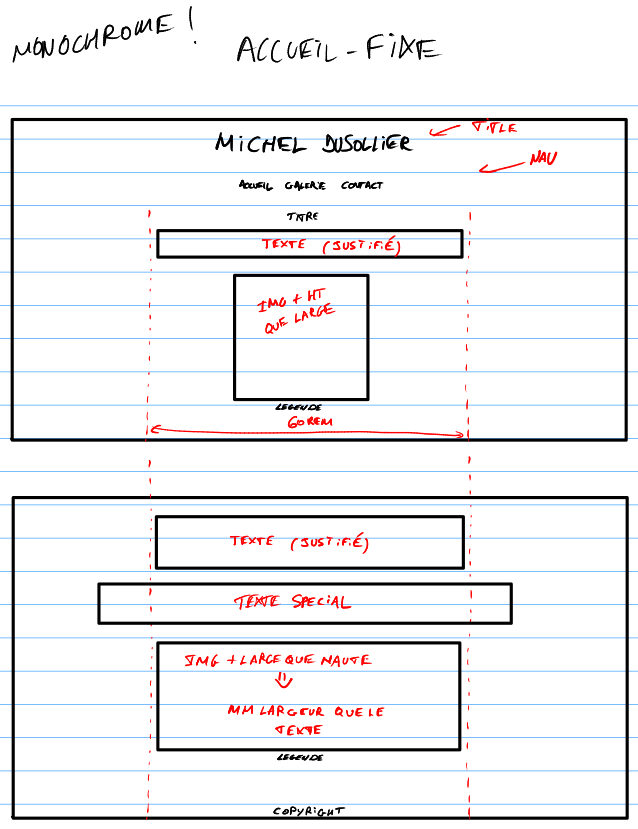 MONOCHROME !
ACCUEIL - FIXE
MICHEL DUSOLLIER
TITLE
NAV
ACCUEIL GALERIE CONTACT
TITRE
TEXTE (JUSTIFIÉ)
IMG + HT
QUE LARGE
LEGENDE
60 REM
TEXTE (JUSTIFIÉ)
TEXTE SPECIAL
IMG + LARGE QUE HAUTE
MM LARGEUR QUE LE
TEXTE
LEGENDE
COPYRIGHT